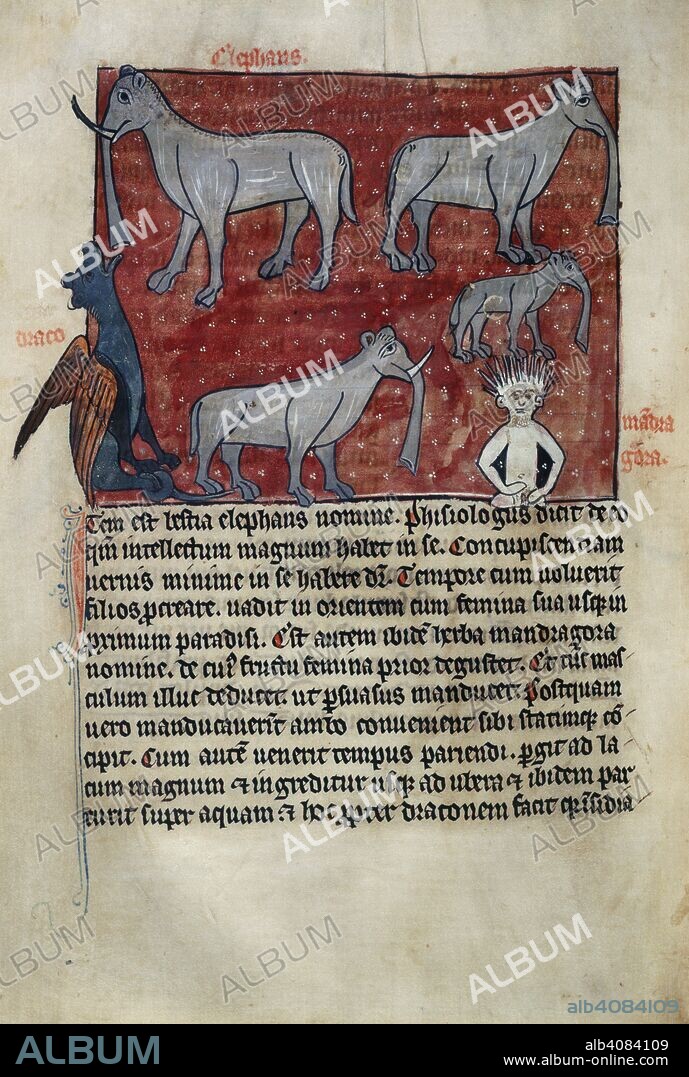 Elephans.
draco
mādra
gora.
Tem est bestia elephans nomine. Phisiologus dicit de eo
qm intellectum magnum habet in se. Concupiscenciam
uernis minime in se habere dr̄. Tempore cum uoluerit
filios pcreare. uadit in orientem cum femina sua usqɜ in
pximum paradisi. Est autem ibidē herba mandragora
nomine. de cuiꝰ fructu femina prior degustet. Et mas
culum illuc deducet ut psuasus manducet. Postquam
uero manducauerīt ambo conuenient sibi statimqɜ cō
cipit. Cum autē uenerit tempus pariendi. pgit ad la
cum magnum ⁊ ingreditur usqɜ ad ubera ⁊ ibidem par
turit super aquam ⁊ hoc ppter draconem facit qr insidia
ALBUM
alb4084109
ALBUM
alb4084109
www.album-online.com